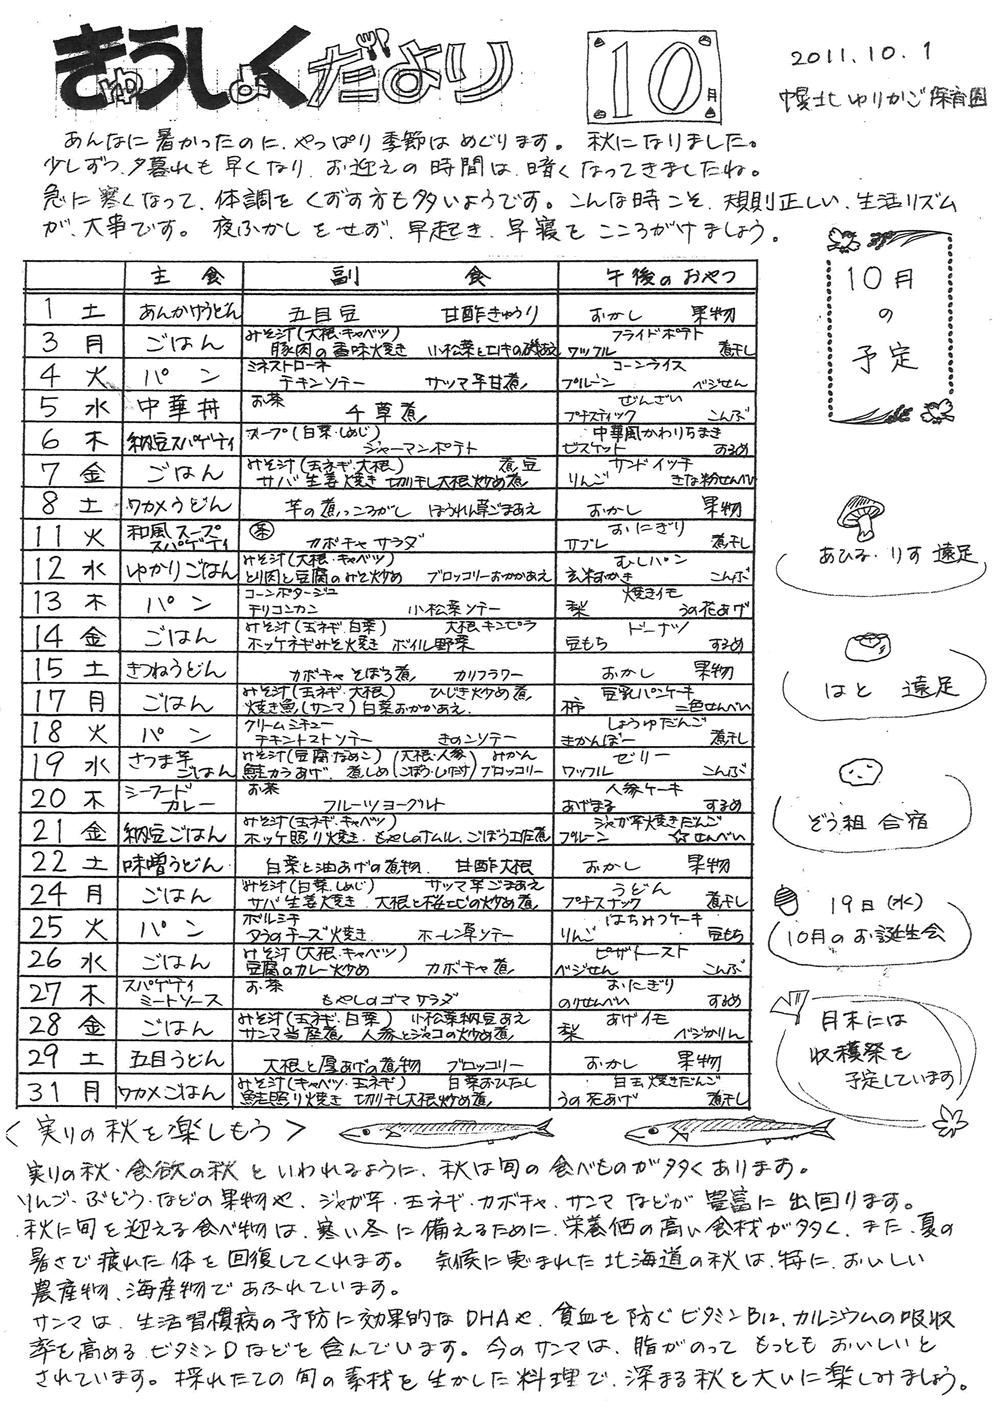 きゅうしょくだより
10月
2011.10.1
幌北ゆりかご保育園
あんなに暑かったのに、やっぱり季節はめぐります。 秋になりました。
少しずつ、夕暮れも早くなり、お迎えの時間は、暗くなってきましたね。
急に寒くなって、体調をくずす方も多いようです。こんな時こそ、規則正しい、生活リズム
が、大事です。 夜ふかしをせず、早起き、早寝をこころがけましょう。
主食 副食 午後のおやつ
1 土 あんかけうどん 五目豆 甘酢きゅうり おかし 果物
3 月 ごはん みそ汁(大根・キャベツ) フライドポテト
豚肉の香味焼き 小松菜とエノキの磯あえ ワッフル 煮干し
4 火 パン ミネストローネ コーンライス
チキンソテー サツマ芋甘煮 プルーン ベジせん
5 水 中華丼 お茶 ぜんざい
千草煮 プチスティック こんぶ
6 木 納豆スパゲティ スープ(白菜・しめじ) 中華風かわりちまき
ジャーマンポテト ビスケット するめ
7 金 ごはん みそ汁(玉ネギ・大根) 煮豆 サンドイッチ
サバ生姜焼き 切り干し大根炒め煮 りんご きな粉せんべい
8 土 ワカメうどん 芋の煮っころがし ほうれん草ごまあえ おかし 果物
11 火 和風スープスパゲティ 茶 おにぎり
カボチャサラダ サブレ 煮干し
12 水 ゆかりごはん みそ汁(大根・キャベツ) むしパン
とり肉と豆腐のみそ炒め ブロッコリーおかかあえ 玄米おかき こんぶ
13 木 パン コーンポタージュ 焼きイモ
チリコンカン 小松菜ソテー 梨 うの花あげ
14 金 ごはん みそ汁(玉ネギ・白菜) 大根キンピラ ドーナツ
ホッケネギみそ焼き ボイル野菜 豆もち するめ
15 土 きつねうどん カボチャそぼろ煮 カリフラワー おかし 果物
17 月 ごはん みそ汁(玉ネギ・大根) ひじき炒め煮 豆乳パンケーキ
焼き魚(サンマ) 白菜おかかあえ 柿 二色せんべい
18 火 パン クリームシチュー しょうゆだんご
チキントマトソテー きのこソテー きかんぼー 煮干し
19 水 さつま芋ごはん みそ汁(豆腐・なめこ) (大根・人参 みかん ゼリー
鮭カラあげ、煮しめ ごぼう・しいたけ) ブロッコリー ワッフル こんぶ
20 木 シーフードカレー お茶 人参ケーキ
フルーツヨーグルト あげまる するめ
21 金 納豆ごはん みそ汁(玉ネギ・キャベツ) ジャガ芋焼きだんご
ホッケ照り焼き、もやしのナムル、ごぼう土佐煮 プルーン ☆せんべい
22 土 味噌うどん 白菜と油あげの煮物 甘酢大根 おかし 果物
24 月 ごはん みそ汁(白菜・しめじ) サツマ芋ごまあえ うどん
サバ生姜焼き 大根と桜エビの炒め煮 プチスナック 煮干し
25 火 パン ボルシチ はちみつケーキ
タラのチーズ焼き ホーレン草ソテー りんご 豆もち
26 水 ごはん みそ汁(大根・キャベツ) ピザトースト
豆腐のカレー炒め カボチャ煮 ベジせん こんぶ
27 木 スパゲティミートソース お茶 おにぎり
もやしのゴマサラダ のりせんべい するめ
28 金 ごはん みそ汁(玉ネギ・白菜) 小松菜納豆あえ あげイモ
サンマ当座煮 人参とジャコの炒め煮 梨 ベジかりん
29 土 五目うどん 大根と厚あげの煮物 ブロッコリー おかし 果物
31 月 ワカメごはん みそ汁(キャベツ・玉ネギ) 白菜おひたし 白玉焼きだんご
鮭照り焼き 切り干し大根炒め煮 うの花あげ 煮干し
10月
の
予定
あひる・りす 遠足
はと 遠足
ぞう組 合宿
19日(水)
10月のお誕生会
月末には
収穫祭を
予定しています
<実りの秋を楽しもう>
実りの秋・食欲の秋といわれるように、秋は旬の食べものが多くあります。
りんご・ぶどう・などの果物や、ジャガ芋・玉ネギ・カボチャ・サンマなどが豊富に出回ります。
秋に旬を迎える食べ物は、寒い冬に備えるために、栄養価の高い食材が多く、また、夏の
暑さで疲れた体を回復してくれます。 気候に恵まれた北海道の秋は、特に、おいしい
農産物、海産物であふれています。
サンマは、生活習慣病の予防に効果的なDHAや、貧血を防ぐビタミンB12、カルシウムの吸収
率を高めるビタミンDなどを含んでいます。今のサンマは、脂がのってもっともおいしいと
されています。採れたての旬の素材を生かした料理で、深まる秋を大いに楽しみましょう。